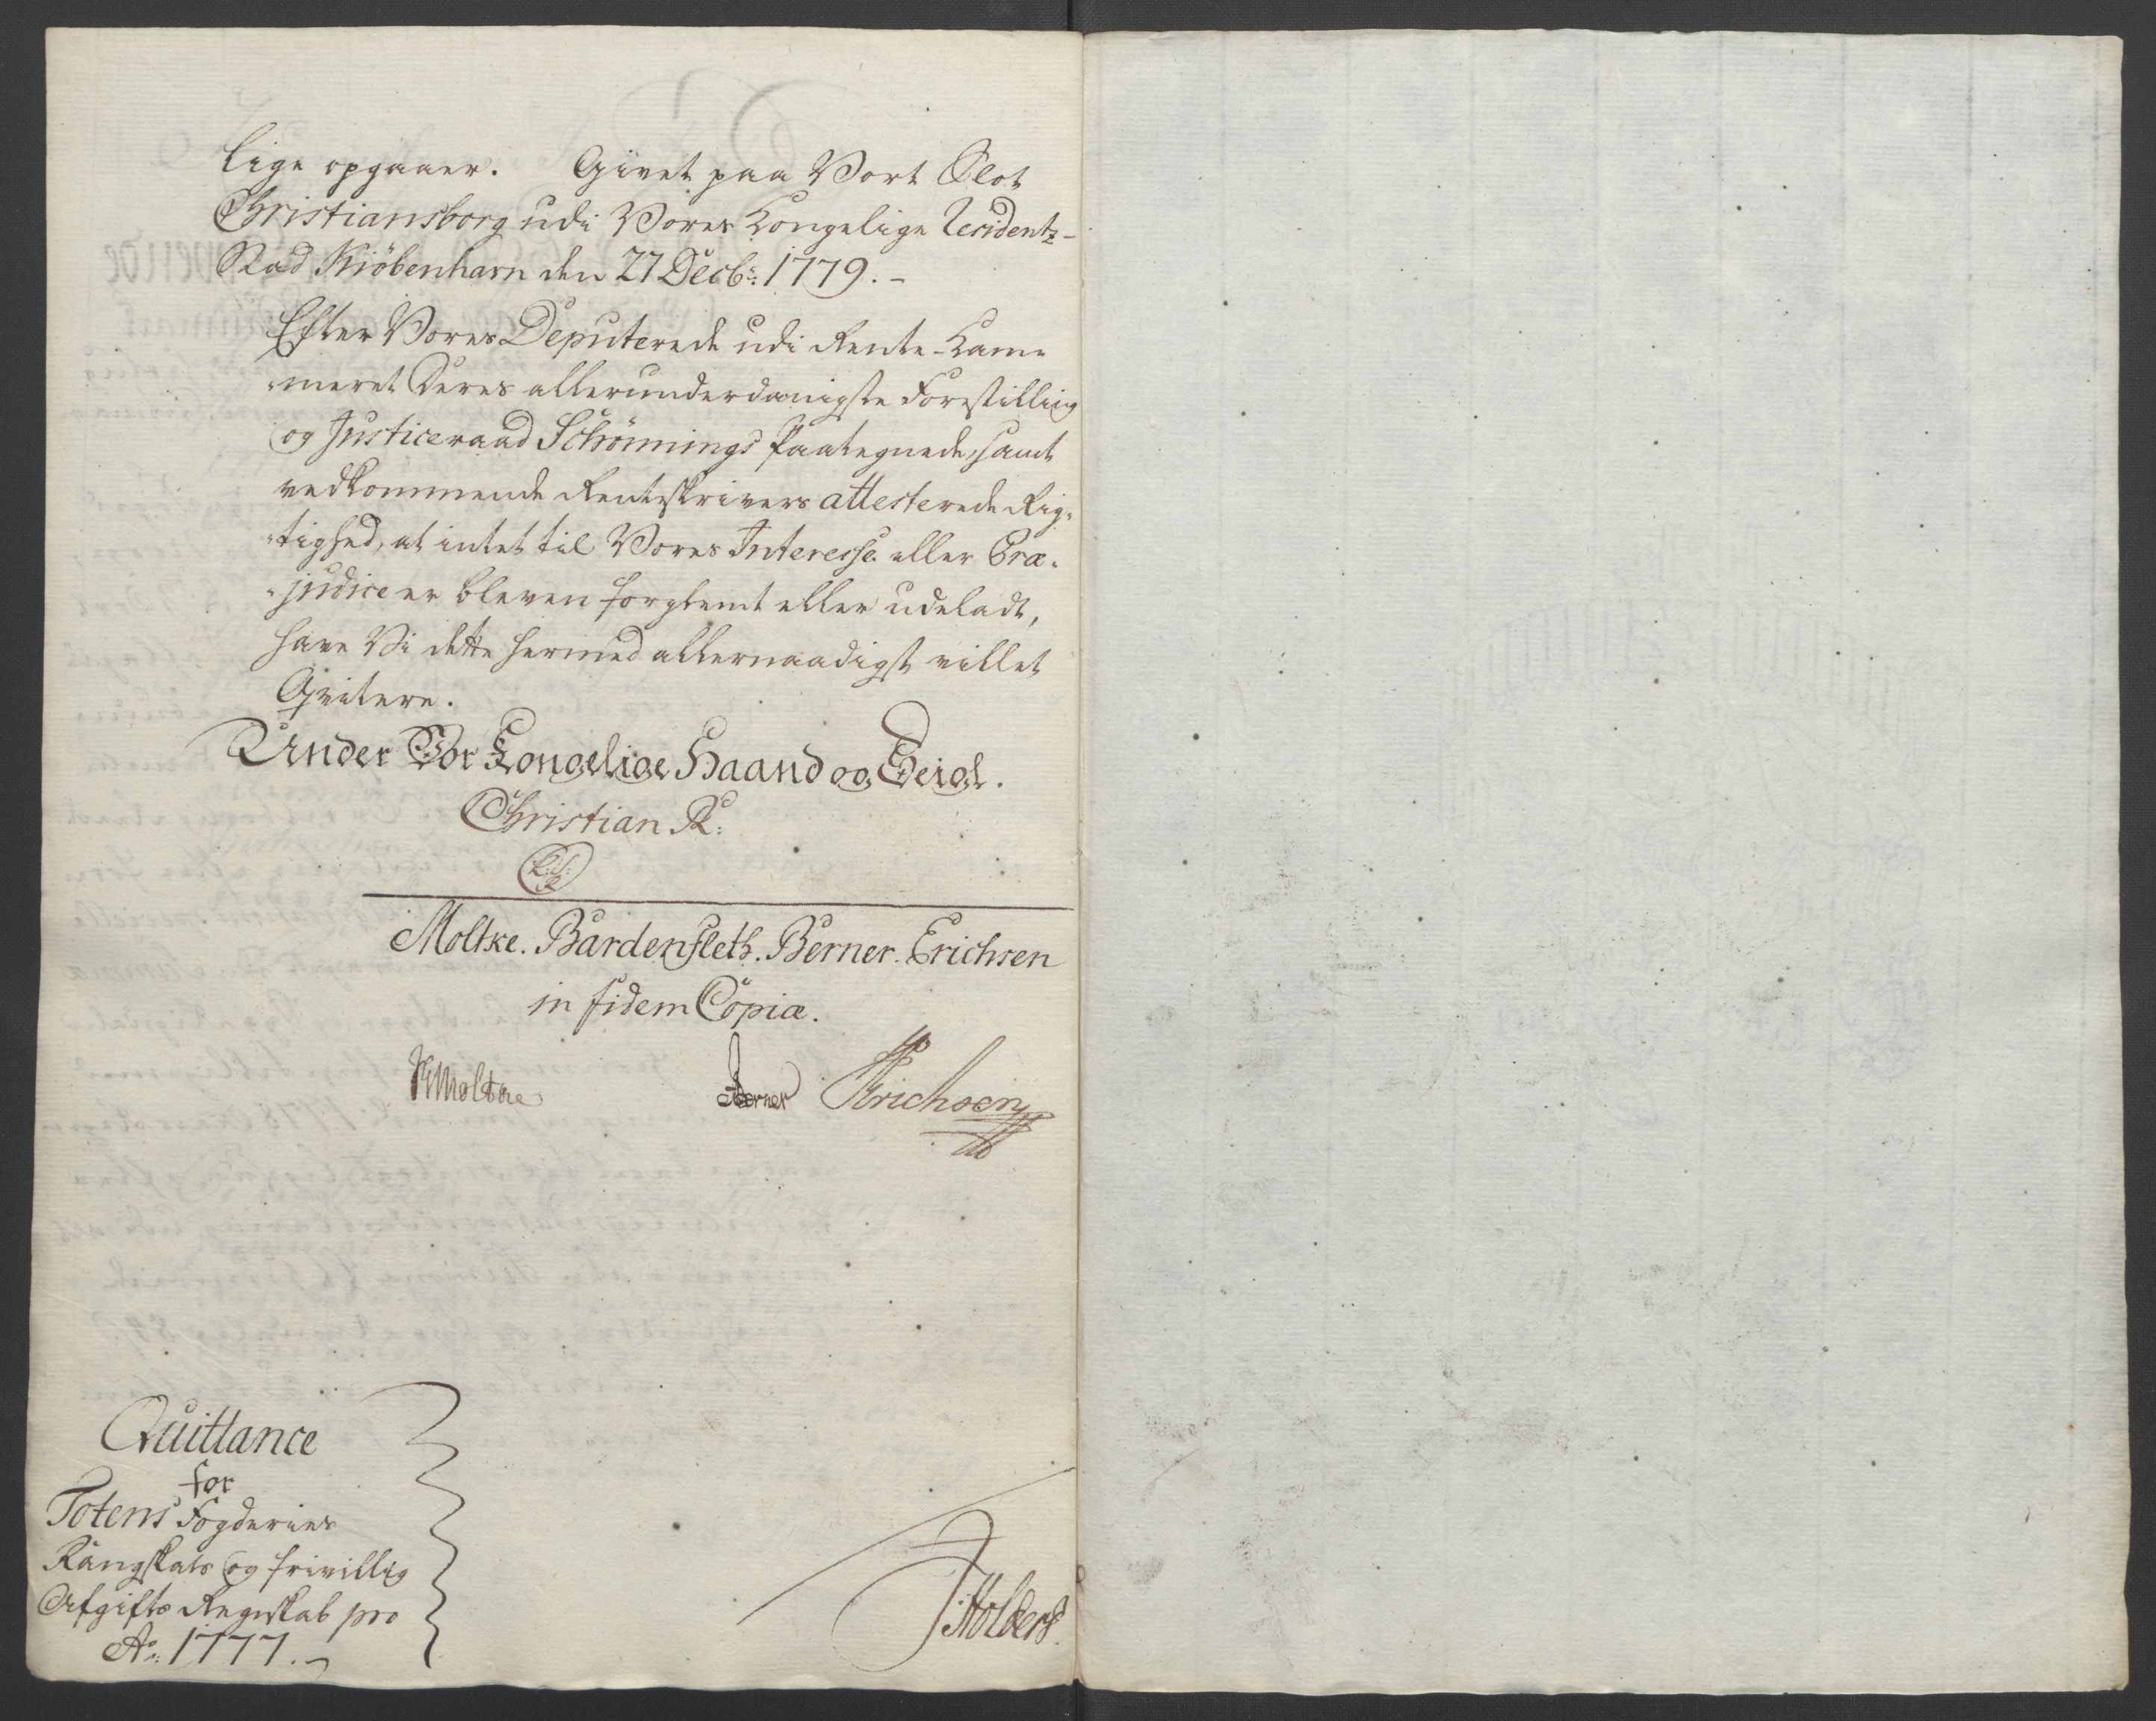 lige opgaaer. Givet paa Vort Slot
Christiansborg udi Vores Kongelige Residentz-
Stad Kiöbenhavn den 27 Decbr: 1779.-
Efter Vores Deputerede udi Rente-Kam-
-meret Deres allerunderdanigste Forestilling
og Justiceraad Schönnings Paategnede, samt
vedkommende Renteskrivers attesterede Rig-
-tighed, at intet til Vores Interesse eller Præ-
-judice er bleven forglemt eller udeladt,
have Vi dette hermed allernaadigst villet
Qvitere.
Under Vor Kongelige Haand og Seigl.
Christian R:
L:S:
R
Moltke. Bardenfleth. Berner. Erichsen
in fidem Copiæ.
Moltke Berner Erichsen
Quittance
for
Totens Fogderies
Rangskats og frivillig
Afgifts Regnskab pro
Ao: 1777.-
Holbers